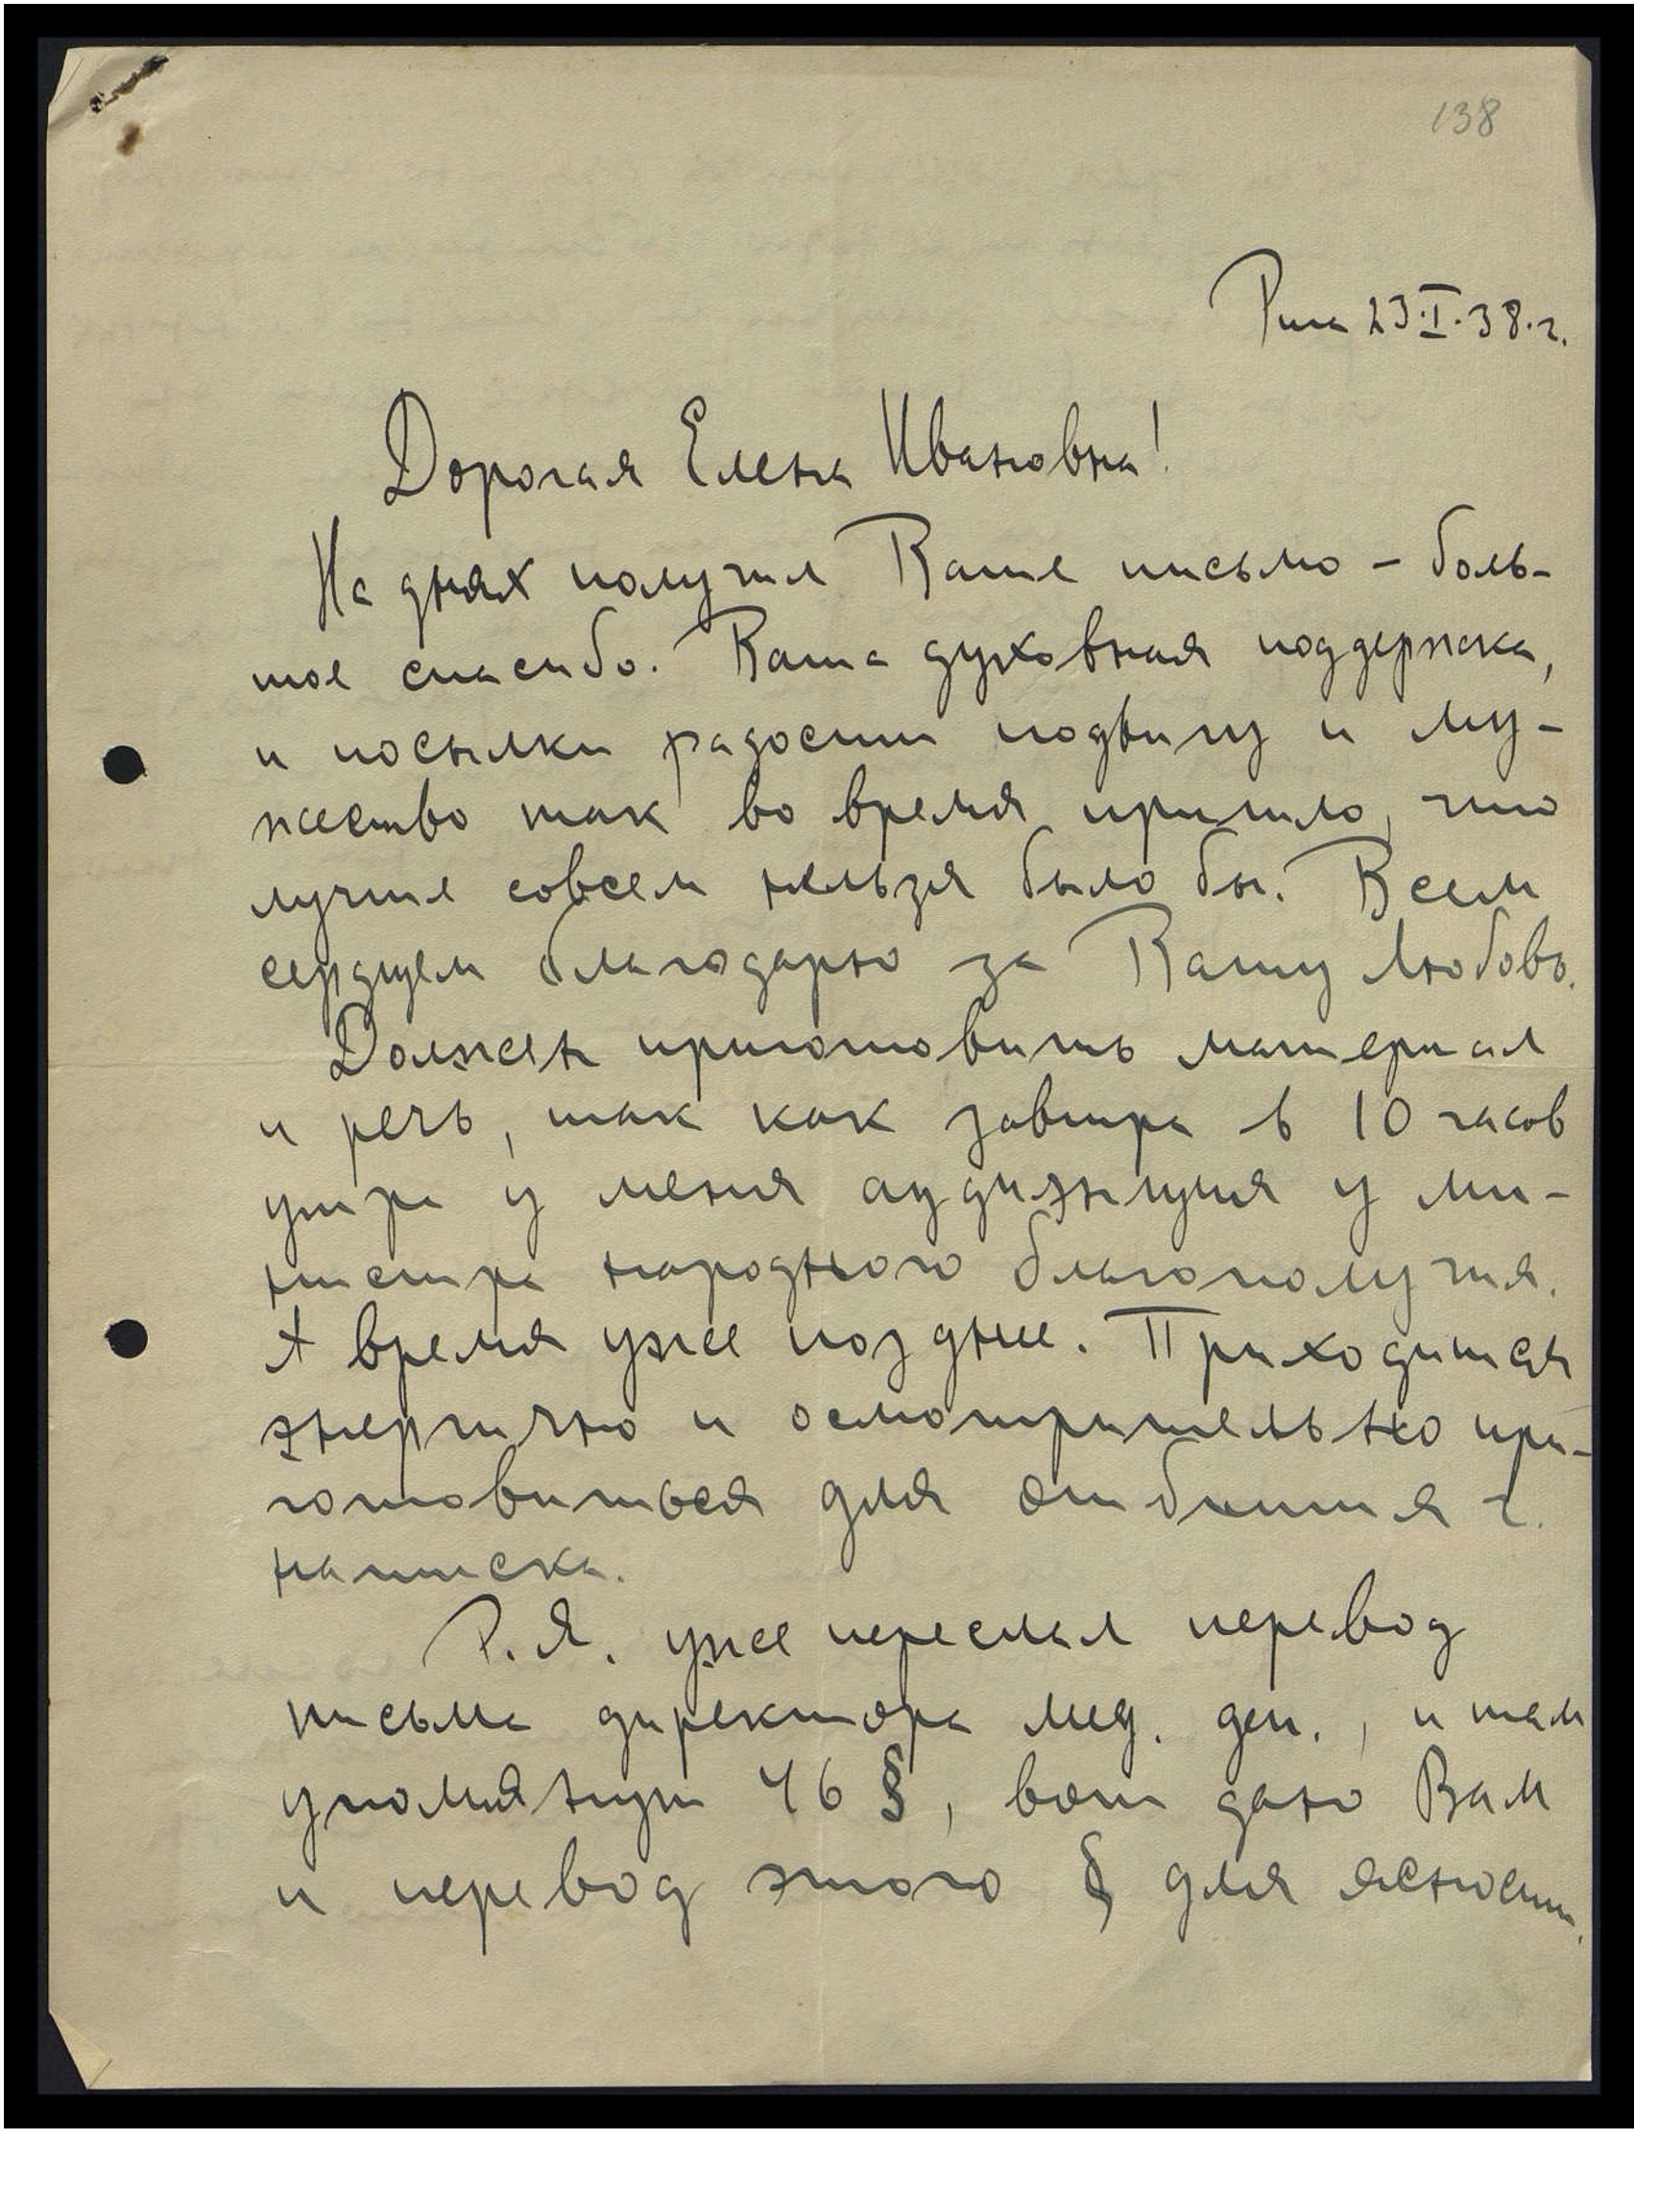 138
Рига 23.I.38.г.
Дорогая Елена Ивановна!
На днях получил Ваше письмо – боль-
шое спасибо. Ваша духовная поддержка,
и посылки радости подвигу и му-
жество так во время пришло, что
лучше совсем нельзя было бы. Всем
сердцем благодарю за Вашу любовь.
Должен приготовить материал
и речь, так как завтра в 10 часов
утра у меня аудиэнция у ми-
нистра народного благополучия.
А время уже позднее. Приходится
энергично и осмотрительно при-
готовиться для отбития г.
натиска.
Р.Я. уже переслал перевод
письма директора мед. деп., и там
упомянут 46 §, вот даю Вам
и перевод этого § для ясности.